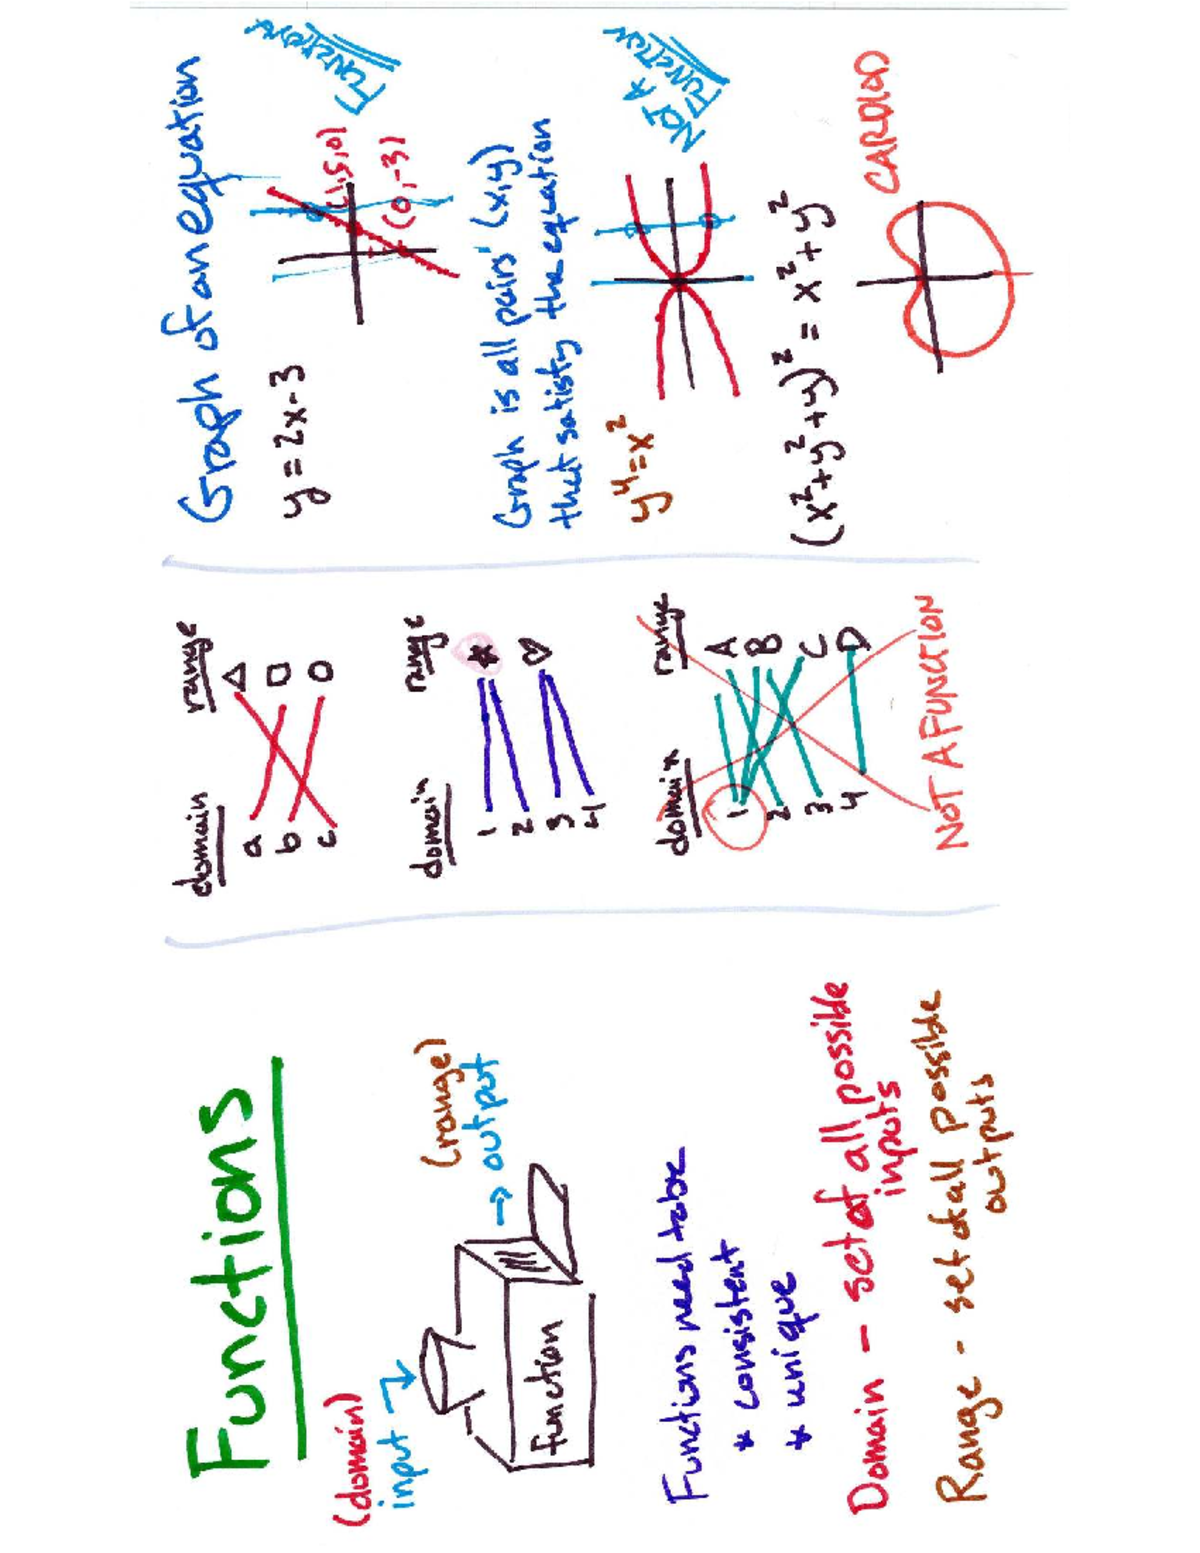 Functions
(domain)
input →
(range)
→ output
function
Functions need to be
* consistent
* unique
Domain - set of all possible
inputs
Range - set of all possible
outputs
domain range
a △
b □
c ○
domain range
1 *
2 ♡
3
4
domain range
1 A
2 B
3 C
4 D
NOT A FUNCTION
Graph of an equation
y = 2x-3
(1.5,0)
(0,-3)
FUNCTION
Graph is all pairs (x,y)
that satisfy the equation
y⁴=x²
NOT A
FUNCTION
(x²+y²+y)² = x²+y²
CARDIOD